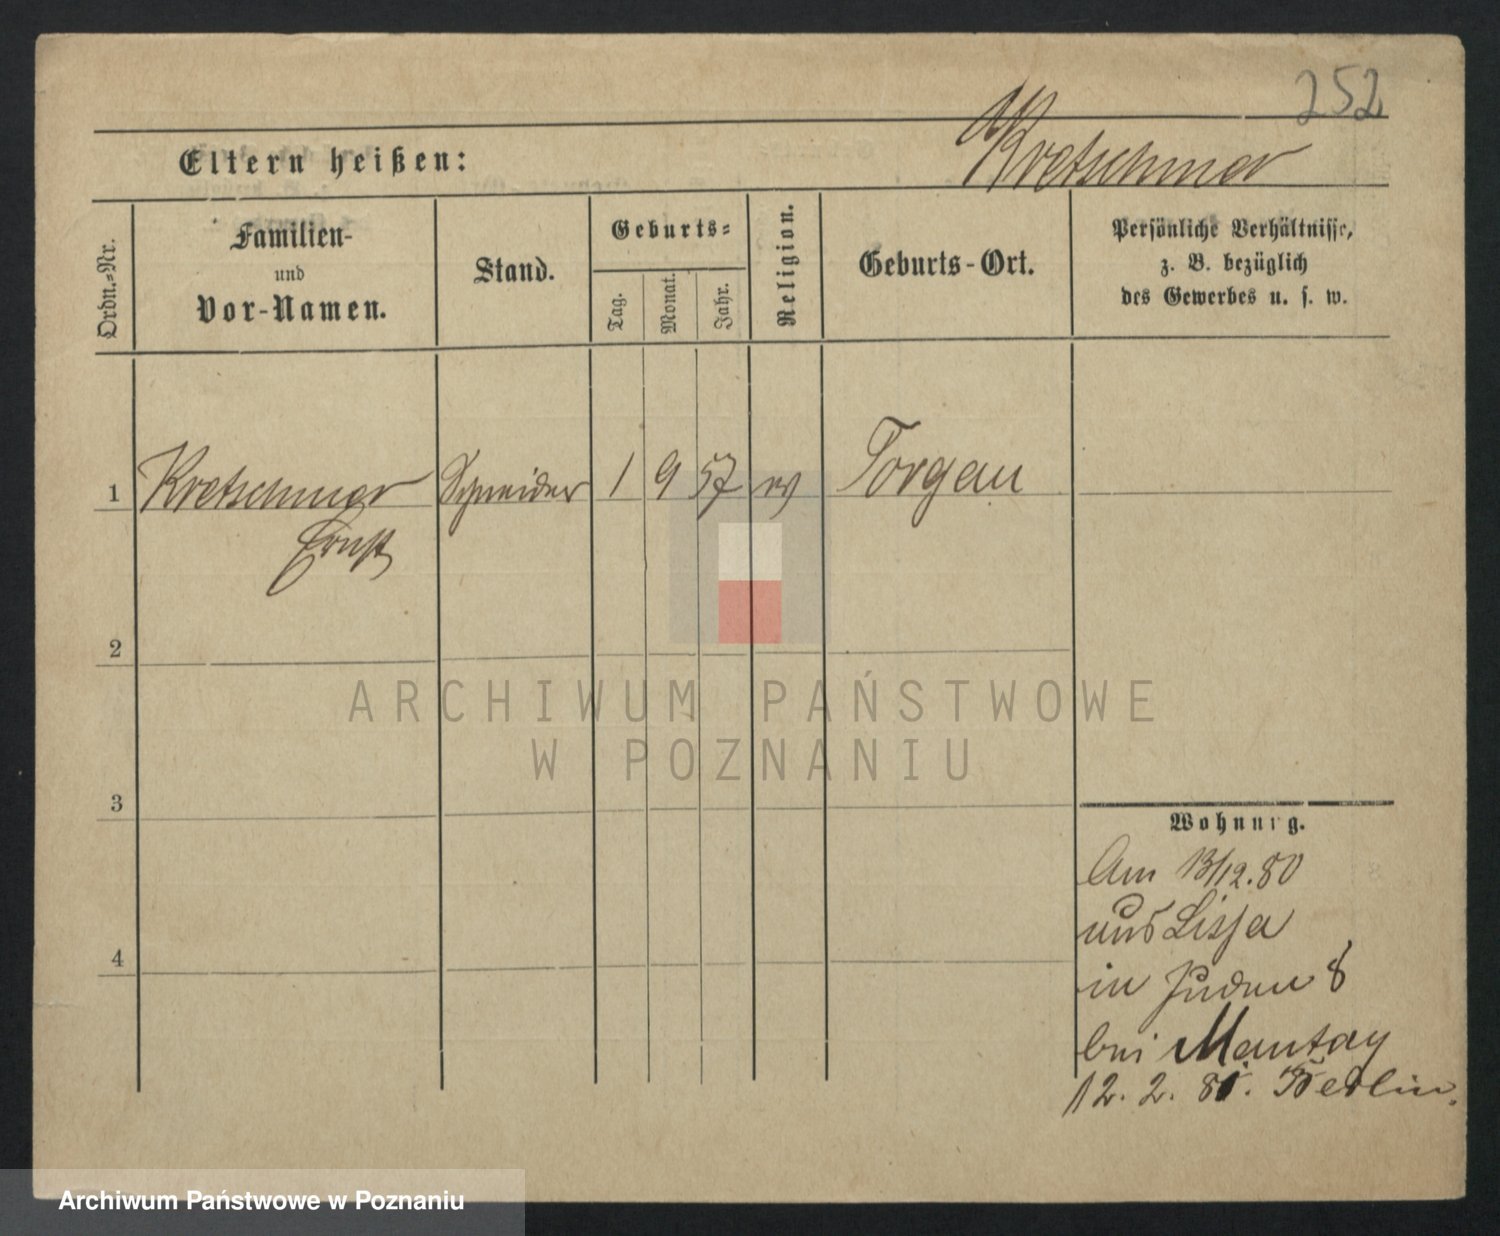 252
Kretschmer
Eltern heißen:
Ordn.-Nr.
Familien-
und
Vor-Namen.
Stand.
Geburts-
Tag.
Monat.
Jahr.
Religion.
Geburts-Ort.
Persönliche Verhältnisse,
z. B. bezüglich
des Gewerbes u. s. w.
1 Kretschmer Schneider 1 9 57 ev Torgau
Ernst
2
3
4
Wohnung.
Am 13/12.80
aus Lissa
in Juden 8
bei Mantay
12. 2. 81. Berlin.
ARCHIWUM PAŃSTWOWE
W POZNANIU
Archiwum Państwowe w Poznaniu